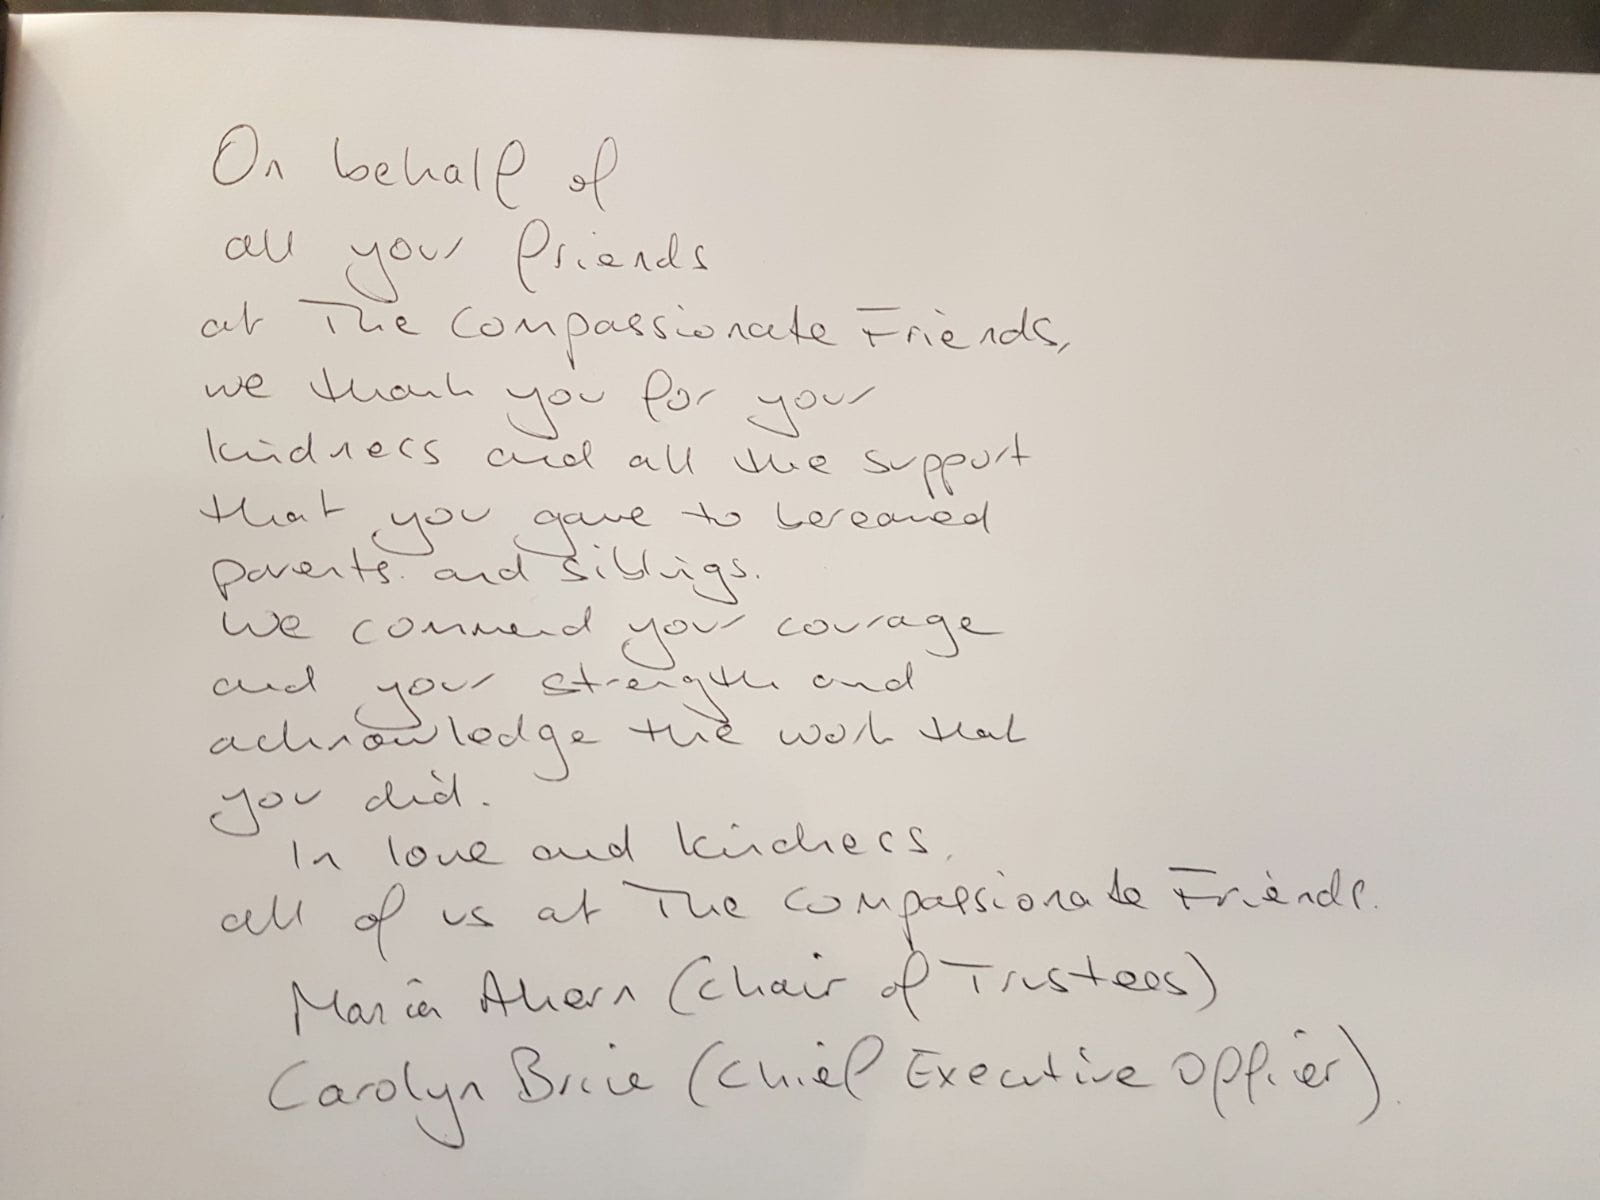 On behalf of
all your friends
at The Compassionate Friends,
we thank you for your
kindness and all the support
that you gave to bereaved
parents. and siblings.
We commend your courage
and your strength and
acknowledge the work that
you did.
In love and kindness,
all of us at The Compassionate Friends.
Maria Ahern (Chair of Trustees)
Carolyn Brice (Chief Executive Officer).